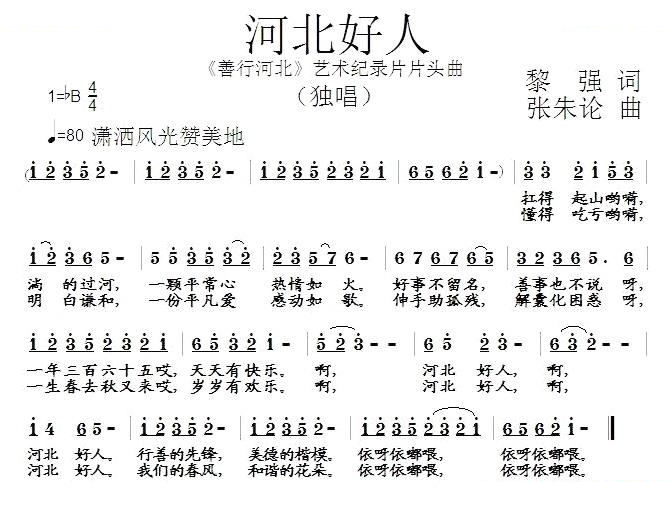 河北好人
《善行河北》艺术纪录片片头曲
（独唱）
黎 强 词
张朱论 曲
1=♭B 4/4
♩=80 潇洒风光赞美地
(1 2 3 5 2 - | 1 2 3 5 2 - | 1 2 3 5 2 3 2 1 | 6 5 6 2 1 - ) | 3 3 2 1 5 3 |
扛得 起山哟嗬，
懂得 吃亏哟嗬，
1 2 3 6 5 - | 5 5 3 5 3 2 | 2 3 5 7 6 - | 6 7 6 7 6 5 | 3 2 3 6 5. 3 |
淌 的过河， 一颗平常心 热情如 火。 好事不留名， 善事也不说 呀，
明 白谦和， 一份平凡爱 感动如 歌。 伸手助孤残， 解囊化困惑 呀，
1 2 3 5 3 5 3 2 | 1 2 3 5 2 - | 5 2 3 - | 6 5 2 3 - | 6 3 2 - |
一年三百六十五哎， 天天有快乐。 啊， 河北 好人， 啊，
一生春去秋又来哎， 岁岁有欢乐。 啊， 河北 好人， 啊，
1 4 6 5 - | 1 2 3 5 2 - | 1 2 3 5 2 - | 1 2 3 5 2 3 2 1 | 5 6 5 6 2 1 - ‖
河北 好人。 行善的先锋， 美德的楷模。 依呀依嘟喂， 依呀依嘟喂。
河北 好人。 我们的春风， 和谐的花朵。 依呀依嘟喂， 依呀依嘟喂。